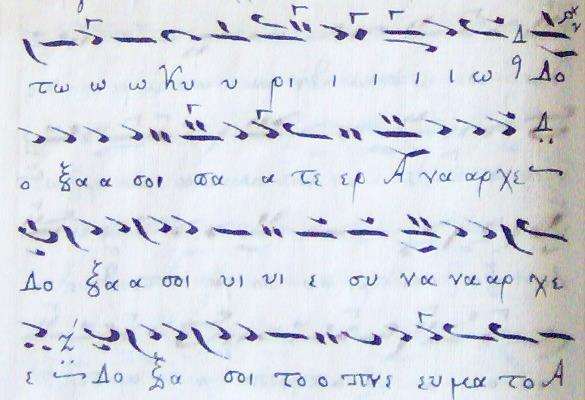 τω ω ω Κυ υ ρι ι ι ι ι ι ω Δο
ο ξα α σοι πα α τε ερ Α να αρ χε
Δο ξα α σοι υι υι ε συ να να αρ χε
ε Δο ξα σοι το ο πνε ευ μα το Α